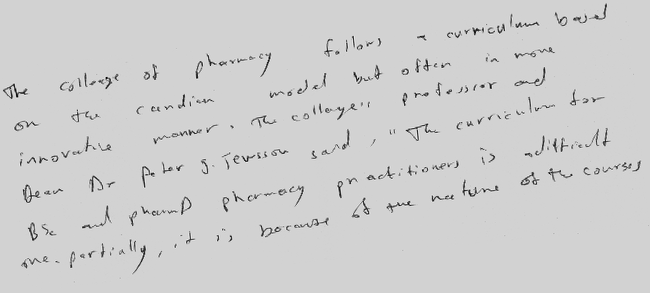 The colleage of pharmacy follows a curriculum based
on the candian model but often in more
innovative manner. The collage's professor and
Dean Dr Peter J. Jewsson said, "The curriculum for
BSc and pharmD pharmacy practitioners is difficult
one. partially, it is because of the nature of the courses